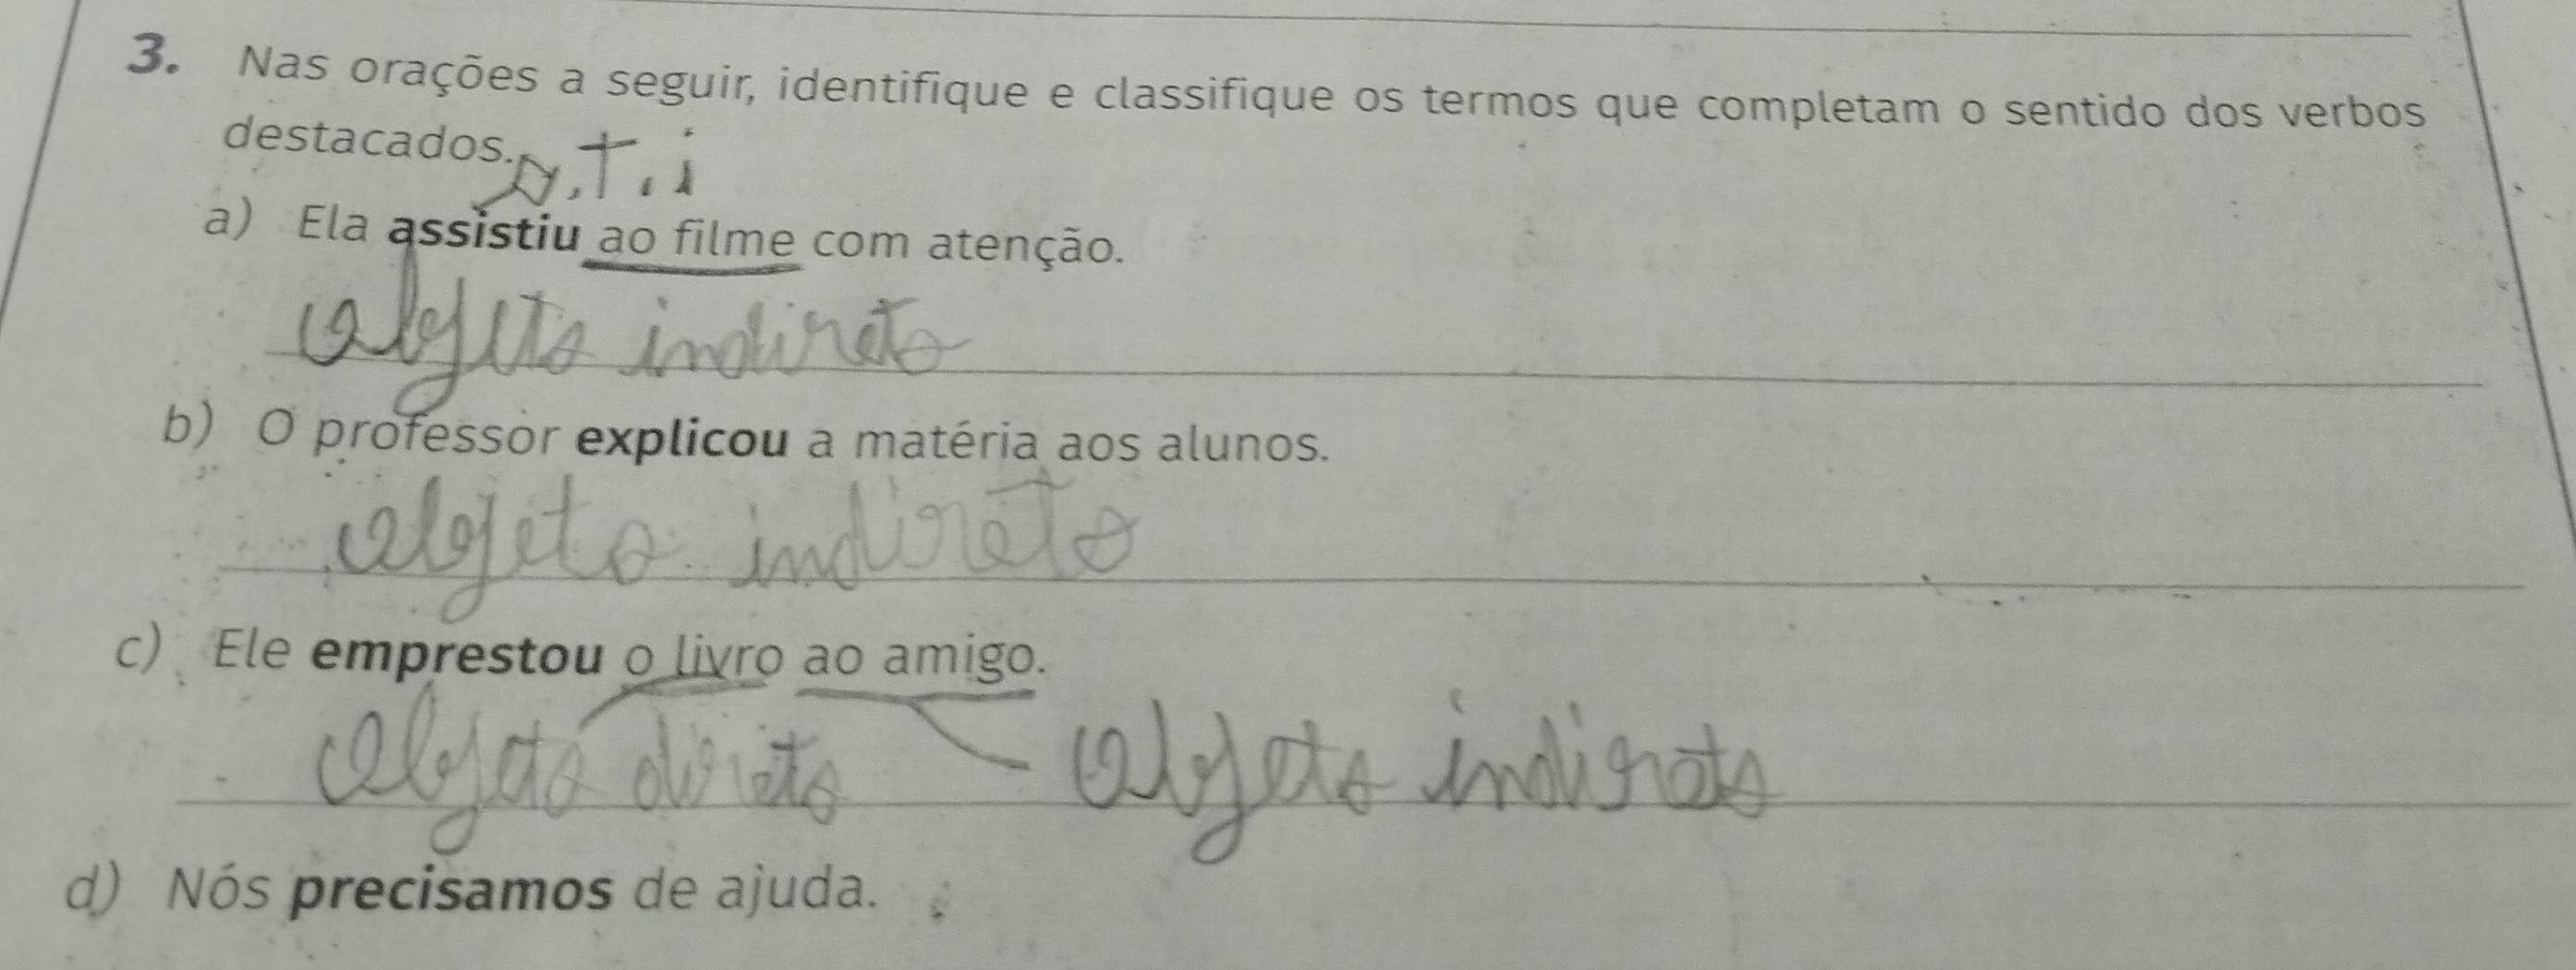 3. Nas orações a seguir, identifique e classifique os termos que completam o sentido dos verbos
destacados.
v.t.i
a) Ela assistiu ao filme com atenção.
objeto indireto
b) O professor explicou a matéria aos alunos.
objeto indireto
c) Ele emprestou o livro ao amigo.
objeto direto objeto indireto
d) Nós precisamos de ajuda.